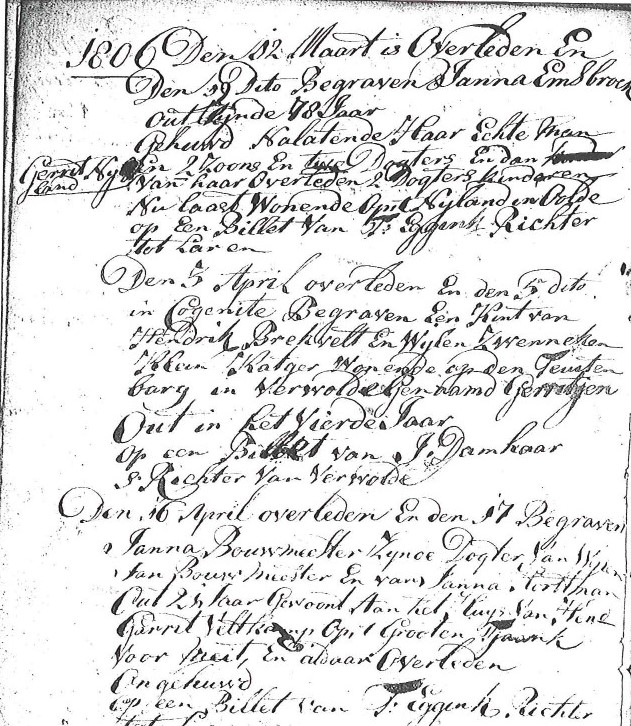 1806 Den 12 Maart is Overleden En
Den 19 Dito Begraven Janna Emsbroek
out Zynde 78 Jaar
Gehuwd Nalatende Haar Echte Man
Gerrit Nyland
En 2 Zoons En twe Dogters En dan
van haar Overleden 2 Dogters kinderen
Nu laast Wonende Op't Nyland in Oolde
op Een Billet Van Eggink Richter
tot Laren
Den 3 April overleden En den 5n dito
in Begraven Een Kint van
Hendrik Brekvelt En Wylen Zwenneken
Klein Katger Wonende op den
barg in Verwolde Genaamd Gerritjen
Out in het Vierde Jaar
Op een Billet van J. Damkaar
Richter Van Verwolde
Den 16 April overleden En den 17 Begraven
Janna Bouwmeester Zynde Dogter Van Wylen
Jan Bouwmeester En van Janna
Out 24 Jaar Gewoont Aan het Huys Van
Gerrit Veltkamp Op't Grooten
Voor meit, En aldaar Overleden
Ongehuwd
op een Billet van Eggink Richter